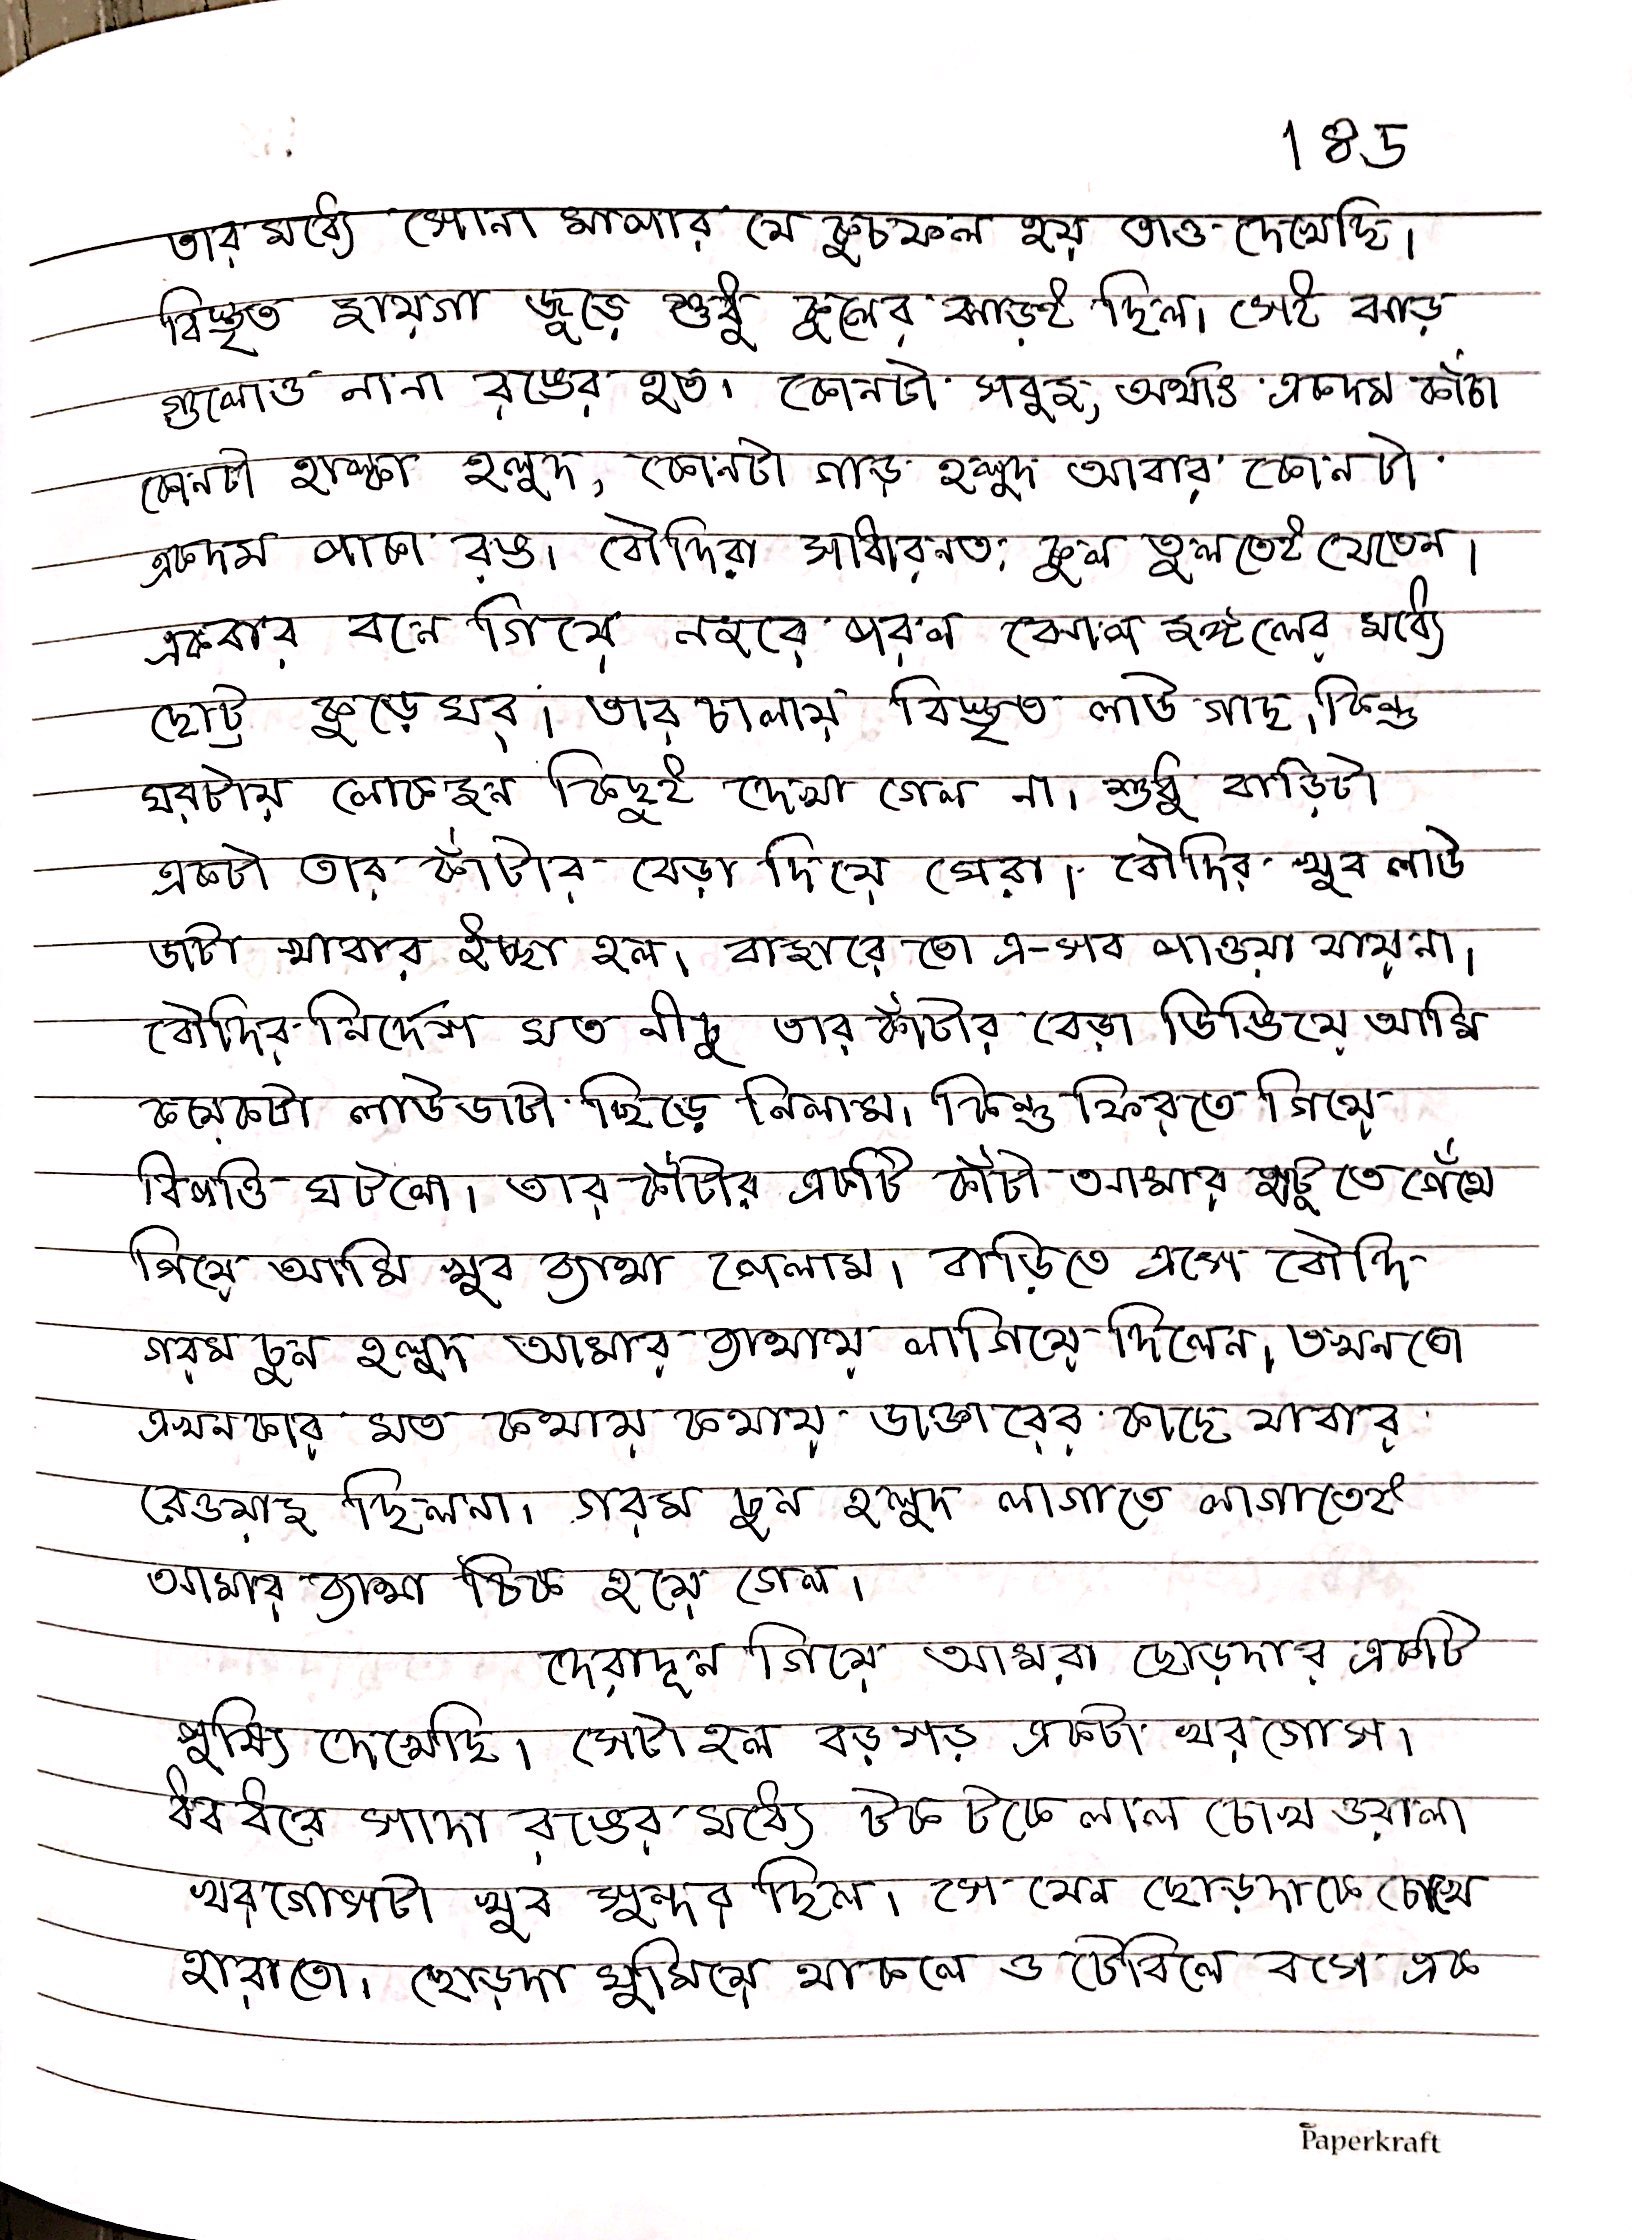 185
তারমধ্যে সোনা মাপার যে কুচফল হয় তাও দেখেছি।
বিস্তৃত জায়গা জুড়ে শুধু কুলের ঝাড়ই ছিল। সেই ঝাড়
গুলোও নানা রঙের হত। কোনটা সবুজ, অর্থাৎ একদম কাঁচা
কোনটা হাল্কা হলুদ, কোনটা গাড় হলুদ আবার কোনটা
একদম পাকা রঙ। বৌদিরা সাধারনত কুল তুলতেই যেতেন।
একবার বনে গিয়ে নজরে পরল ঝোপ জঙ্গলের মধ্যে
ছোট্ট কুড়ে ঘর। তার চালায় বিস্তৃত লাউ গাছ, কিন্তু
ঘরটায় লোকজন কিছুই দেখা গেল না। শুধু বাড়িটা
একটা তার কাঁটার বেড়া দিয়ে ঘেরা। বৌদির খুব লাউ
ডাটা খাবার ইচ্ছা হল। বাজারে তো এ-সব পাওয়া যায়না।
বৌদির নির্দেশ মত নীচু তার কাঁটার বেড়া ডিঙিয়ে আমি
কয়েকটা লাউডাটা ছিড়ে নিলাম। কিন্তু ফিরতে গিয়ে
বিপত্তি ঘটলো। তার কাঁটার একটি কাঁটা আমার হাটুতে গেঁথে
গিয়ে আমি খুব ব্যাথা পেলাম। বাড়িতে এসে বৌদি
গরম চুন হলুদ আমার ব্যাথায় লাগিয়ে দিলেন, তখনতো
এখনকার মত কথায় কথায় ডাক্তারের কাছে যাবার
রেওয়াজ ছিলনা। গরম চুন হলুদ লাগাতে লাগাতেই
আমার ব্যাথা ঠিক হয়ে গেল।
দেরাদূন গিয়ে আমরা ছোড়দার একটি
পুষ্যি দেখেছি। সেটা হল বড়সড় একটা খরগোস।
ধবধবে সাদা রঙের মধ্যে টকটকে লাল চোখ ওয়ালা
খরগোসটা খুব সুন্দর ছিল। সে যেন ছোড়দাকে চোখে
হারাতো। ছোড়দা ঘুমিয়ে থাকলে ও টেবিলে বসে এক
Paperkraft